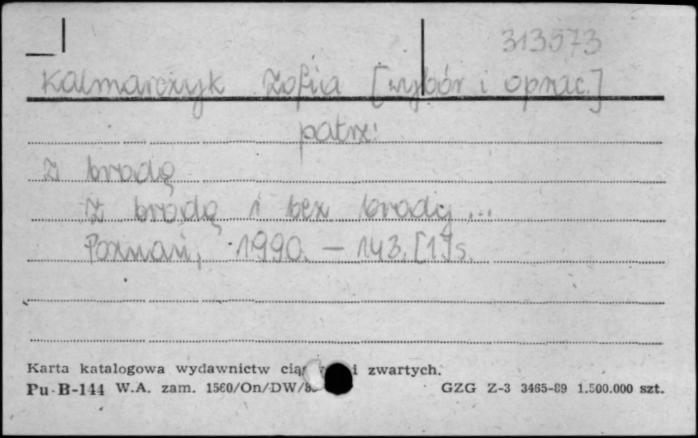 313573
Kalmarczyk Zofia [wybór i oprac.]
patrz:
Z brodą
Z brodą i bez brody...
Poznań, 1990. – 143,[1]s.
Karta katalogowa wydawnictw i zwartych.
Pu-B-144 W.A. zam. 1560/On/DW/ GZG Z-3 3465-89 1.500.000 szt.